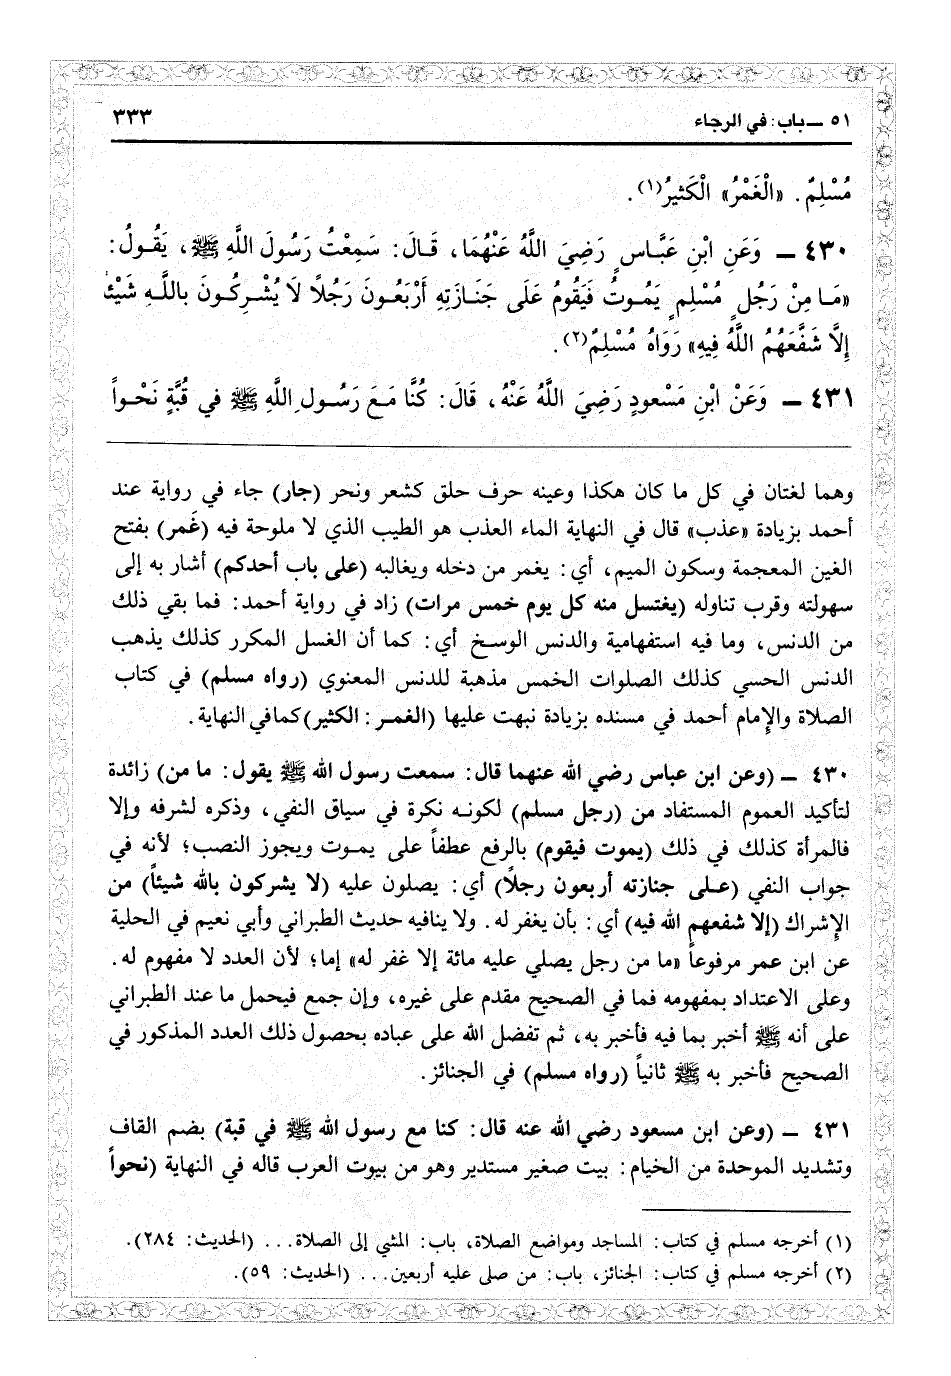 ٥١ ــ باب: في الرجاء ٣٣٣
مُسْلِمٌ. «الْغَمْرُ» الْكَثِيرُ(١).
٤٣٠ ــ وَعَنِ ابْنِ عَبَّاسٍ رَضِيَ اللَّهُ عَنْهُمَا، قَالَ: سَمِعْتُ رَسُولَ اللَّهِ ﷺ، يَقُولُ:
«مَا مِنْ رَجُلٍ مُسْلِمٍ يَمُوتُ فَيَقُومُ عَلَى جَنَازَتِهِ أَرْبَعُونَ رَجُلاً لَا يُشْرِكُونَ بِاللَّهِ شَيْئاً
إِلَّا شَفَّعَهُمُ اللَّهُ فِيهِ» رَوَاهُ مُسْلِمٌ(٢).
٤٣١ ــ وَعَنْ ابْنِ مَسْعودٍ رَضِيَ اللَّهُ عَنْهُ، قَالَ: كُنَّا مَعَ رَسُولِ اللَّهِ ﷺ في قُبَّةٍ نَحْواً
وهما لغتان في كل ما كان هكذا وعينه حرف حلق كشعر ونحر (جار) جاء في رواية عند
أحمد بزيادة «عذب» قال في النهاية الماء العذب هو الطيب الذي لا ملوحة فيه (غَمر) بفتح
الغين المعجمة وسكون الميم، أي: يغمر من دخله ويغالبه (على باب أحدكم) أشار به إلى
سهولته وقرب تناوله (يغتسل منه كل يوم خمس مرات) زاد في رواية أحمد: فما بقي ذلك
من الدنس، وما فيه استفهامية والدنس الوسخ أي: كما أن الغسل المكرر كذلك يذهب
الدنس الحسي كذلك الصلوات الخمس مذهبة للدنس المعنوي (رواه مسلم) في كتاب
الصلاة والإمام أحمد في مسنده بزيادة نبهت عليها (الغمر: الكثير) كما في النهاية.
٤٣٠ ــ (وعن ابن عباس رضي الله عنهما قال: سمعت رسول الله ﷺ يقول: ما من) زائدة
لتأكيد العموم المستفاد من (رجل مسلم) لكونه نكرة في سياق النفي، وذكره لشرفه وإلا
فالمرأة كذلك في ذلك (يموت فيقوم) بالرفع عطفاً على يموت ويجوز النصب؛ لأنه في
جواب النفي (على جنازته أربعون رجلاً) أي: يصلون عليه (لا يشركون بالله شيئاً) من
الإشراك (إلا شفعهم الله فيه) أي: بأن يغفر له. ولا ينافيه حديث الطبراني وأبي نعيم في الحلية
عن ابن عمر مرفوعاً «ما من رجل يصلي عليه مائة إلا غفر له» إما؛ لأن العدد لا مفهوم له.
وعلى الاعتداد بمفهومه فما في الصحيح مقدم على غيره، وإن جمع فيحمل ما عند الطبراني
على أنه ﷺ أخبر بما فيه فأخبر به، ثم تفضل الله على عباده بحصول ذلك العدد المذكور في
الصحيح فأخبر به ﷺ ثانياً (رواه مسلم) في الجنائز.
٤٣١ ــ (وعن ابن مسعود رضي الله عنه قال: كنا مع رسول الله ﷺ في قبة) بضم القاف
وتشديد الموحدة من الخيام: بيت صغير مستدير وهو من بيوت العرب قاله في النهاية (نحواً
(١) أخرجه مسلم في كتاب: المساجد ومواضع الصلاة، باب: المشي إلى الصلاة... (الحديث: ٢٨٤).
(٢) أخرجه مسلم في كتاب: الجنائز، باب: من صلى عليه أربعين... (الحديث: ٥٩).